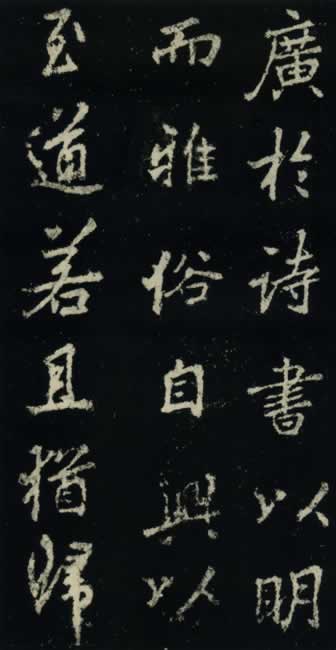 廣於诗書以明
而雅俗自興以
至道若且猶歸